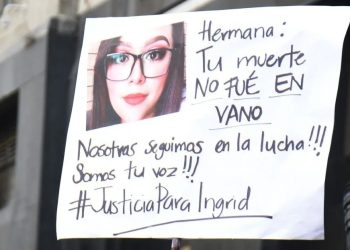 Hermana:
Tu muerte
NO FUÉ EN
VANO
Nosotras seguimos en la lucha!!!
Somos tu voz!!!
#JusticiaParaIngrid